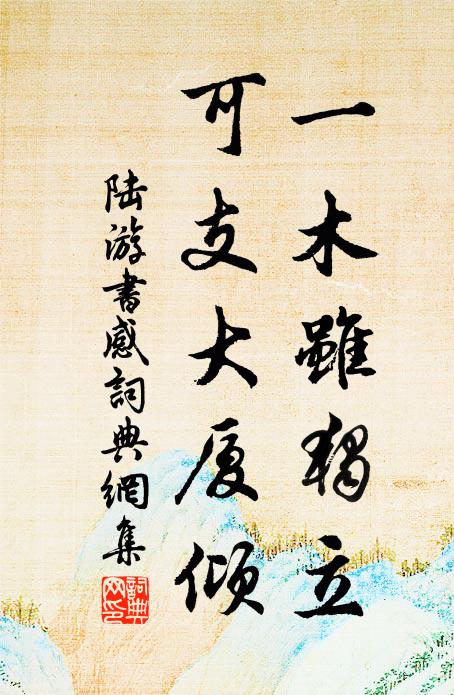 一木雖獨立
可支大厦傾
陆游書感詞典網集
詞典